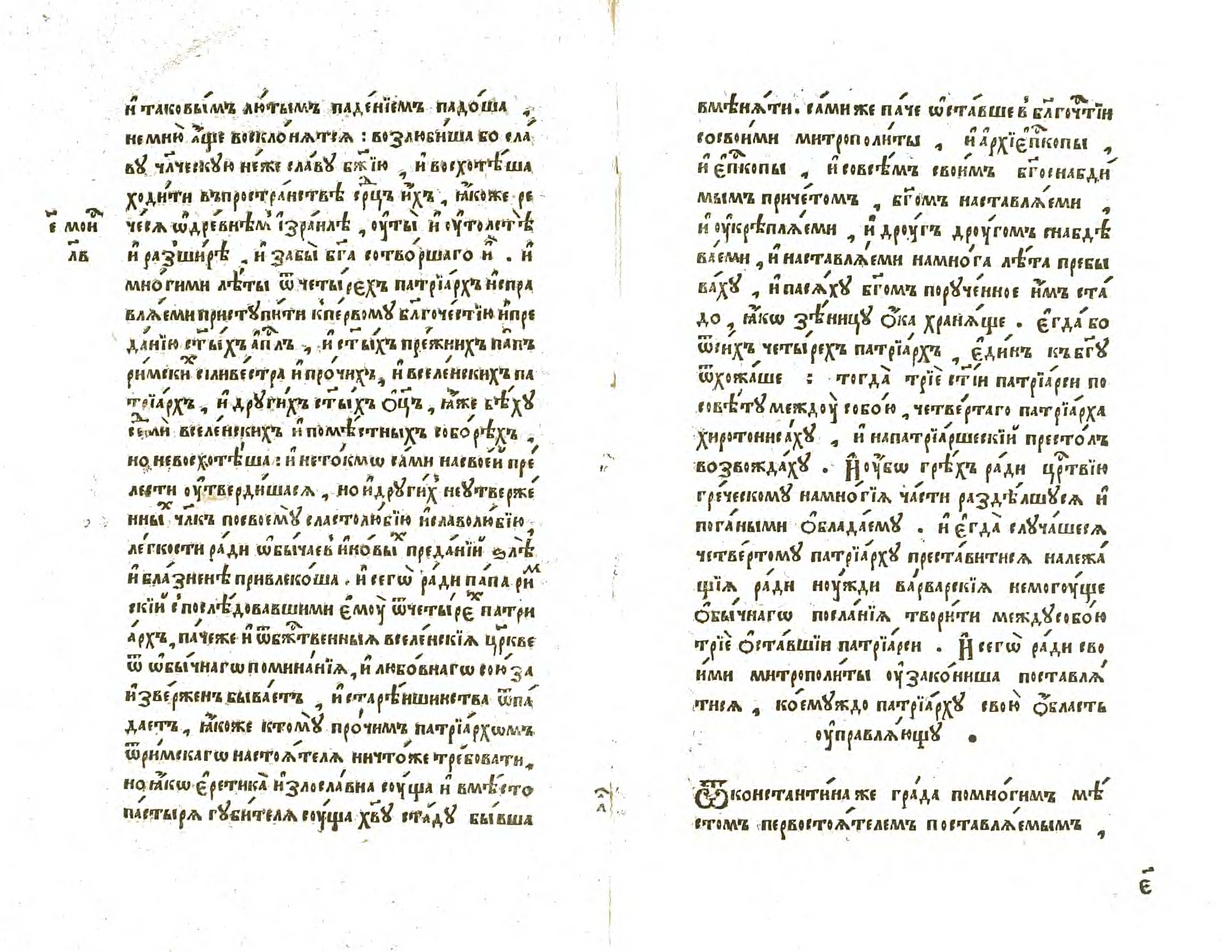 и҆ таковы́мъ лю́тымъ паде́нїемъ падо́ша ,
немню̀ а҆́ще восклоня́тся : возлюби́ша бо сла́
ву чл҃ческую не́же сла́ву бж҃їю , и҆ восхотѣ́ша
ходи́ти въпростра́нствѣ срⷣцъ и҆́хъ , ꙗ҆́коже ре
че́ся ѡ҆дре́внѣмъ і҆зра́илѣ , оу҆ты̀ и҆ оу҆толстѣ̀
и҆ разши́рѣ , и҆ забы̀ бг҃а сотво́ршаго и҆̀ . и҆
мно́гими лѣ́ты ѿ четы́рехъ патрїа́рхъ и҆спра
вля́еми приступи́ти кпе́рвому бл҃гоче́стїю и҆пре
да́нїю ст҃ы́хъ а҆пⷭ҇лъ , и҆ ст҃ы́хъ пре́жнихъ па́пъ
ри́мскиⷯ сіливе́стра и҆ про́чихъ , и҆ вселе́нскихъ па
трїа́рхъ , и҆ други́хъ ст҃ы́хъ ѻ҆ц҃ъ , ꙗ҆́же бѣ́ху
сеⷣми́ вселе́нскихъ и҆ помѣ́стныхъ собо́рѣхъ ,
но невосхотѣ́ша : и҆ нето́кмѡ са́ми насвое́й пре́
лести оу҆тверди́шася , но и҆ други́хъ неутверже́
нныⷯ чл҃къ посвоему̀ сластолю́бїю и҆ славолю́бїю
ле́гкости ра́ди ѡ҆бы́чаев и҆ новыⷯ преда́нїй ѕлѣ̀
и҆ бла́зненѣ привлеко́ша . и҆ сегѡ̀ ра́ди па́па риⷨ
скїй с̾послѣ́довавшими є҆моу̀ ѿчеты́реⷯ патри
а́рхъ , па́чеже и҆ ѿбжⷭ҇твенныя вселе́нскїя цр҃кве
ѿ ѡ҆бы́чнагѡ помина́нїя , и҆ любо́внагѡ сою́за
и҆зве́рженъ быва́етъ , и҆ старѣ́ишинства ѿпа́
даетъ , ꙗ҆́коже ктому̀ про́чимъ патрїа́рхѡмъ
ѿри́мскагѡ настоя́теля ничто́же тре́бовати ,
но ꙗ҆́кѡ є҆ретика̀ и҆ злосла́вна су́ща и҆ вмѣ́сто
па́стыря губи́теля соу́ща хв҃у ста́ду бы́вша
є҃ мои҆ⷭ
л҃в
вмѣня́ти . са́ми же па́че ѡ҆ста́вше в̾ бл҃гочⷭ҇тїи
сосвои́ми митрополи́ты , и҆ а҆рхїе҆пⷭ҇копы ,
и҆ є҆пⷭ҇копы , и҆ совсѣ́мъ свои́мъ бг҃оснабди́
мымъ при́четомъ , бг҃омъ наставля́еми ,
и҆ оу҆крѣпля́еми , и҆ дроу́гъ дроу́гомъ снабдѣ
ва́еми , и҆ наставля́еми намно́га лѣ́та пребы
ва́ху , и҆ пася́ху бг҃омъ пору́ченное и҆́мъ ста́
до , ꙗ҆́кѡ зѣ́ницу ѻ҆́ка храня́ще . є҆гда́ бо
ѿси́хъ четы́рехъ патрїа́рхъ , є҆ди́нъ къ бг҃у
ѿхожа́ше : тогда̀ трїѐ ст҃їи патрїа́рси по
совѣ́ту междоу̀ собо́ю , четве́ртаго патрїа́рха
хиротониса́ху , и҆ напатрїа́ршескїй престо́лъ
возвожда́ху . И҆ оу҆́бѡ грѣ́хъ ра́ди црⷭ҇твїю
гре́ческому намно́гїя ча́сти раздѣ́лшуся и҆
пога́ными ѻ҆блада́ему . и҆ є҆гда̀ случа́шеся
четве́ртому патрїа́рху преста́витися належа́
щїя ра́ди ноу́жди ва́рварскїя немогоу́ще
ѻ҆бы́чнагѡ посла́нїя твори́ти между собо́ю
трїѐ ѻ҆ста́вшїи патрїа́рси . И҆ сегѡ̀ ра́ди сво
и́ми митрополи́ты оу҆зако́ниша поставля́
тися , коему́ждо патрїа́рху свою̀ ѻ҆́бласть
оу҆правля́ющу .
Ѿконстанти́на же гра́да помно́гимъ мѣ́
стомъ первостоя́телемъ поставля́емымъ ,
є҃